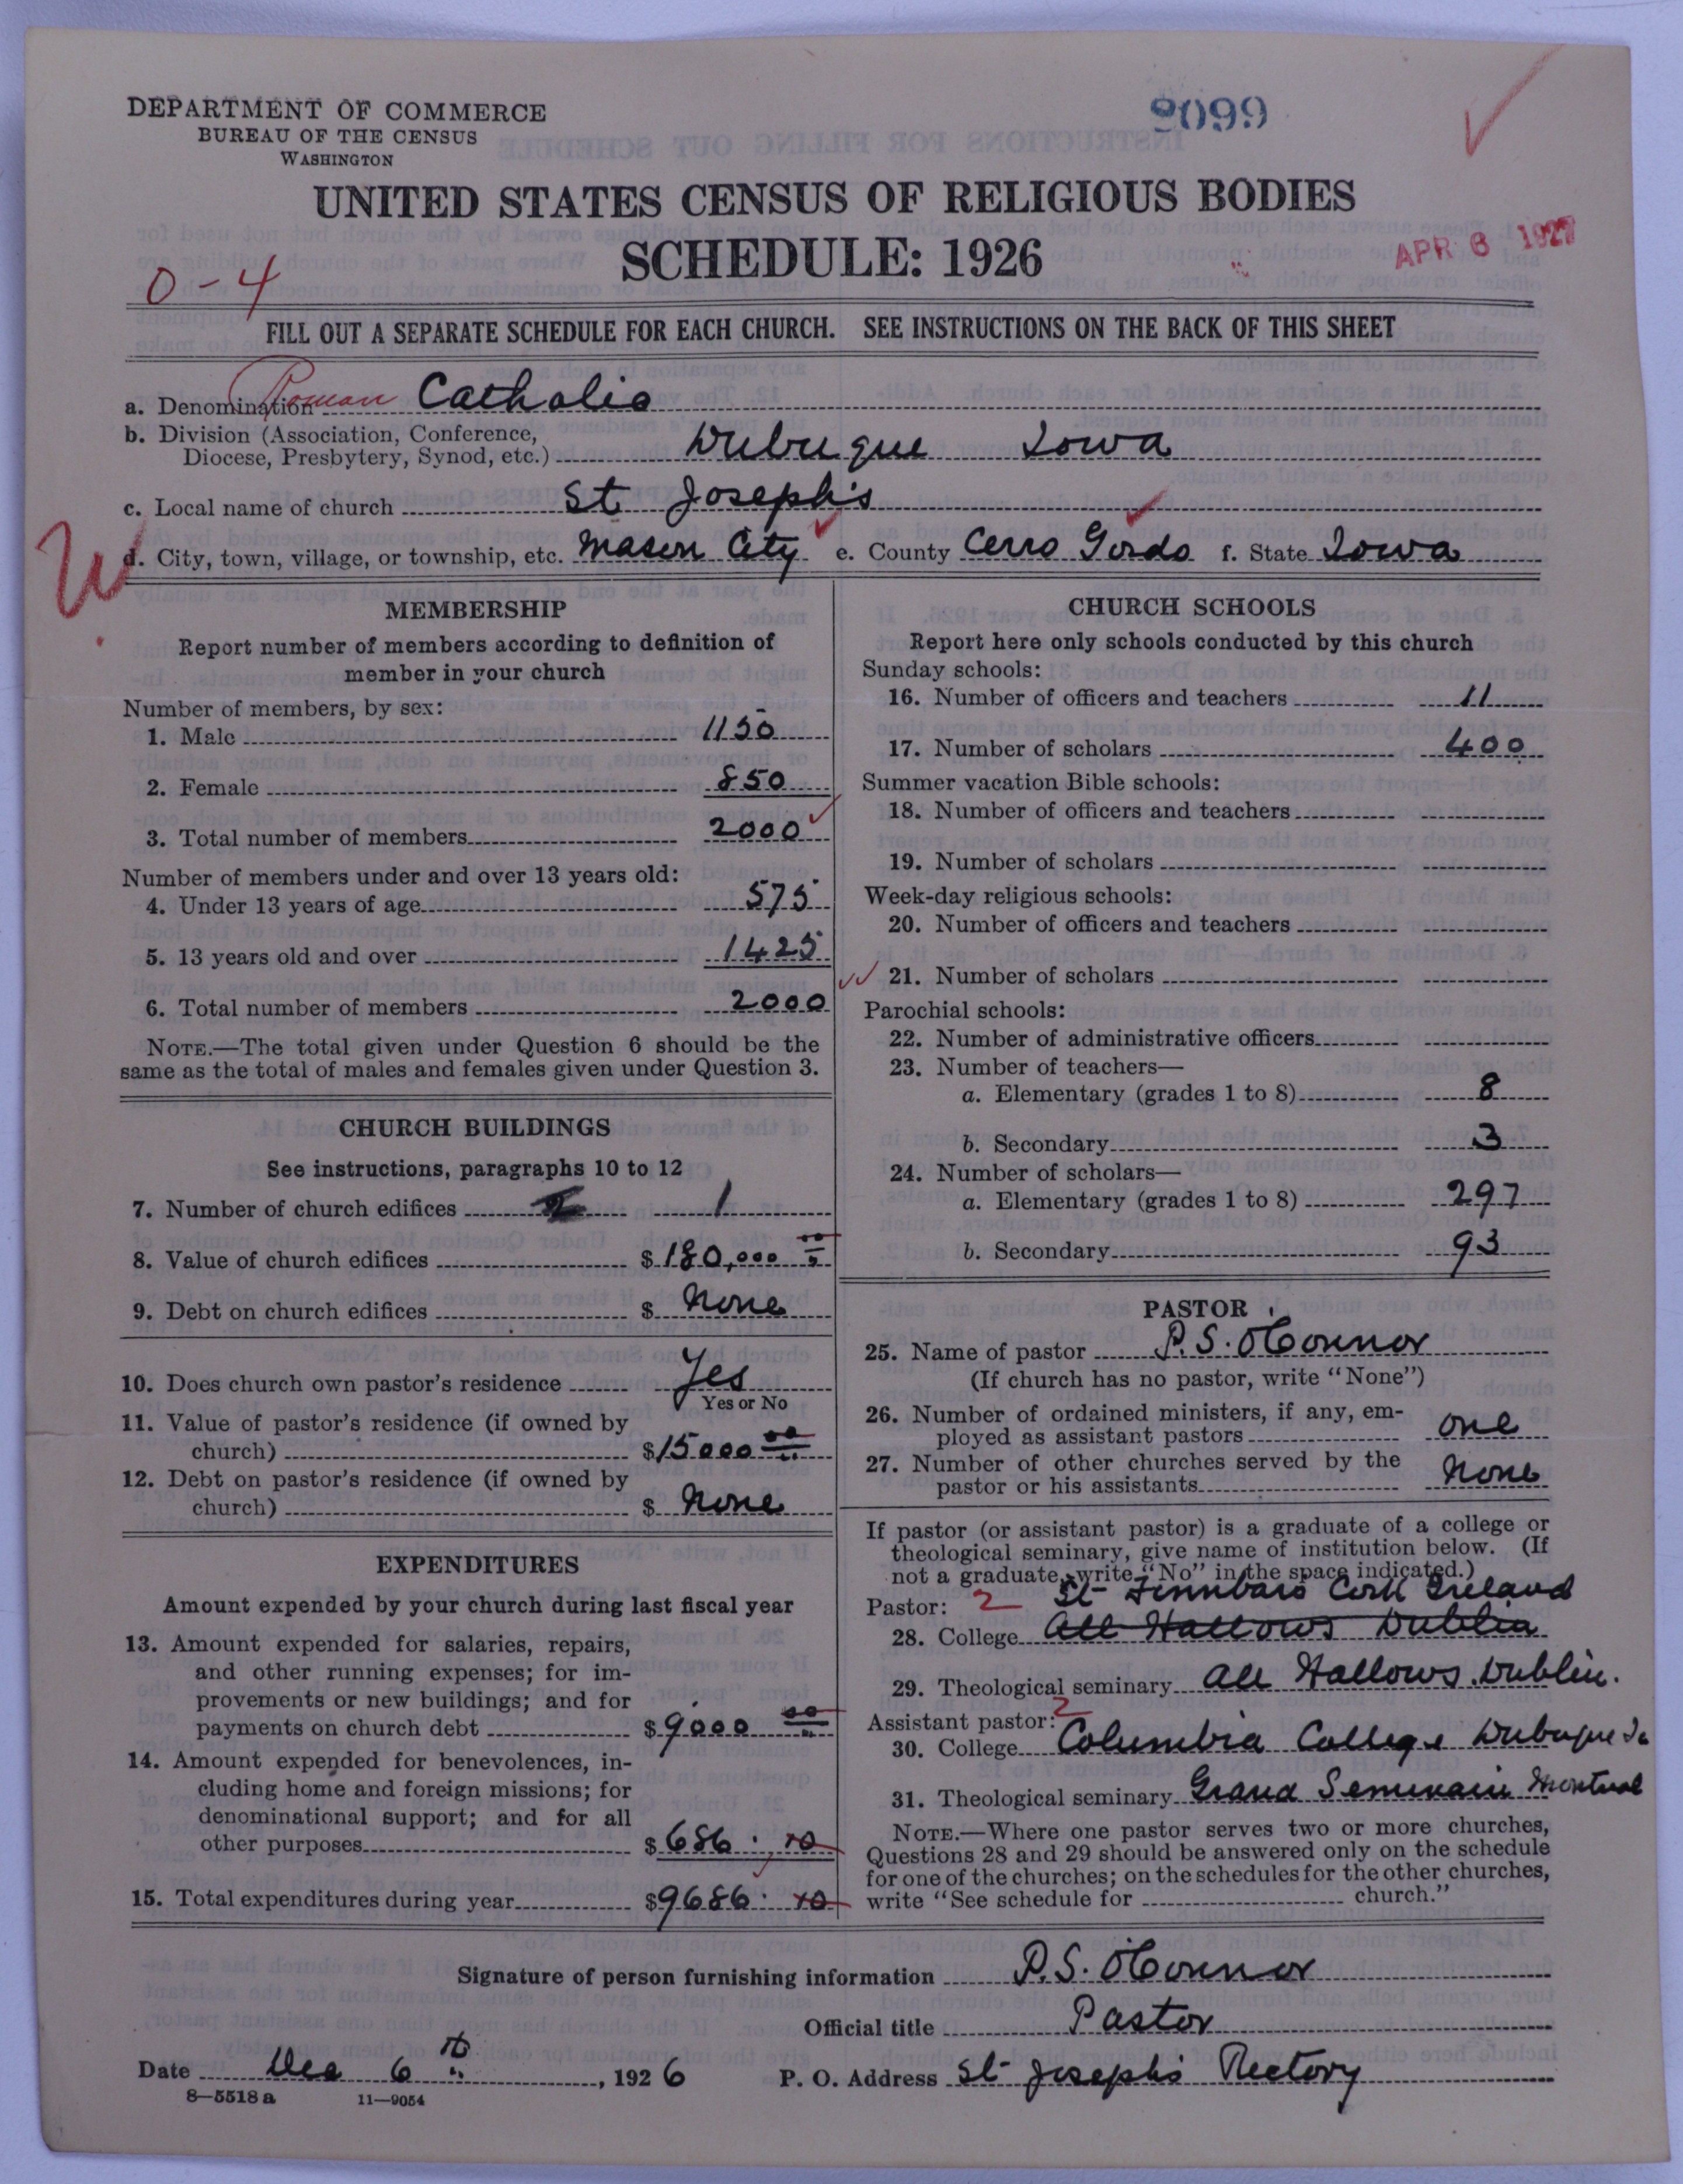 DEPARTMENT OF COMMERCE
BUREAU OF THE CENSUS
WASHINGTON
8099
UNITED STATES CENSUS OF RELIGIOUS BODIES
SCHEDULE: 1926
APR 6 1927
0-4
FILL OUT A SEPARATE SCHEDULE FOR EACH CHURCH. SEE INSTRUCTIONS ON THE BACK OF THIS SHEET
a. Denomination Roman Catholic
b. Division (Association, Conference,
Diocese, Presbytery, Synod, etc.) Dubuque Iowa
c. Local name of church St Joseph's
d. City, town, village, or township, etc. Mason City e. County Cerro Gordo f. State Iowa
MEMBERSHIP
Report number of members according to definition of
member in your church
Number of members, by sex:
1. Male 1150
2. Female 850
3. Total number of members 2000
Number of members under and over 13 years old:
4. Under 13 years of age 575
5. 13 years old and over 1425
6. Total number of members 2000
NOTE.—The total given under Question 6 should be the
same as the total of males and females given under Question 3.
CHURCH BUILDINGS
See instructions, paragraphs 10 to 12
7. Number of church edifices 1
8. Value of church edifices $180,000 00
9. Debt on church edifices $ None
10. Does church own pastor's residence Yes
Yes or No
11. Value of pastor's residence (if owned by
church) $15000 00
12. Debt on pastor's residence (if owned by
church) $ None
EXPENDITURES
Amount expended by your church during last fiscal year
13. Amount expended for salaries, repairs,
and other running expenses; for im-
provements or new buildings; and for
payments on church debt $9000 00
14. Amount expended for benevolences, in-
cluding home and foreign missions; for
denominational support; and for all
other purposes $686.70
15. Total expenditures during year $9686.70
CHURCH SCHOOLS
Report here only schools conducted by this church
Sunday schools:
16. Number of officers and teachers 11
17. Number of scholars 400
Summer vacation Bible schools:
18. Number of officers and teachers
19. Number of scholars
Week-day religious schools:
20. Number of officers and teachers
21. Number of scholars
Parochial schools:
22. Number of administrative officers
23. Number of teachers—
a. Elementary (grades 1 to 8) 8
b. Secondary 3
24. Number of scholars—
a. Elementary (grades 1 to 8) 297
b. Secondary 93
PASTOR
25. Name of pastor P.S. O'Connor
(If church has no pastor, write "None")
26. Number of ordained ministers, if any, em-
ployed as assistant pastors one
27. Number of other churches served by the
pastor or his assistants None
If pastor (or assistant pastor) is a graduate of a college or
theological seminary, give name of institution below. (If
not a graduate, write "No" in the space indicated.)
Pastor: 2 St Finnbars Cork Ireland
28. College All Hallows Dublin
29. Theological seminary All Hallows Dublin.
Assistant pastor: 2
30. College Columbia College Dubuque Ia
31. Theological seminary Grand Seminaire Montreal
NOTE.—Where one pastor serves two or more churches,
Questions 28 and 29 should be answered only on the schedule
for one of the churches; on the schedules for the other churches,
write "See schedule for church."
Signature of person furnishing information P.S. O'Connor
Official title Pastor
Date Dec 6th, 1926 P. O. Address St Joseph's Rectory
8—5518 a 11—9054